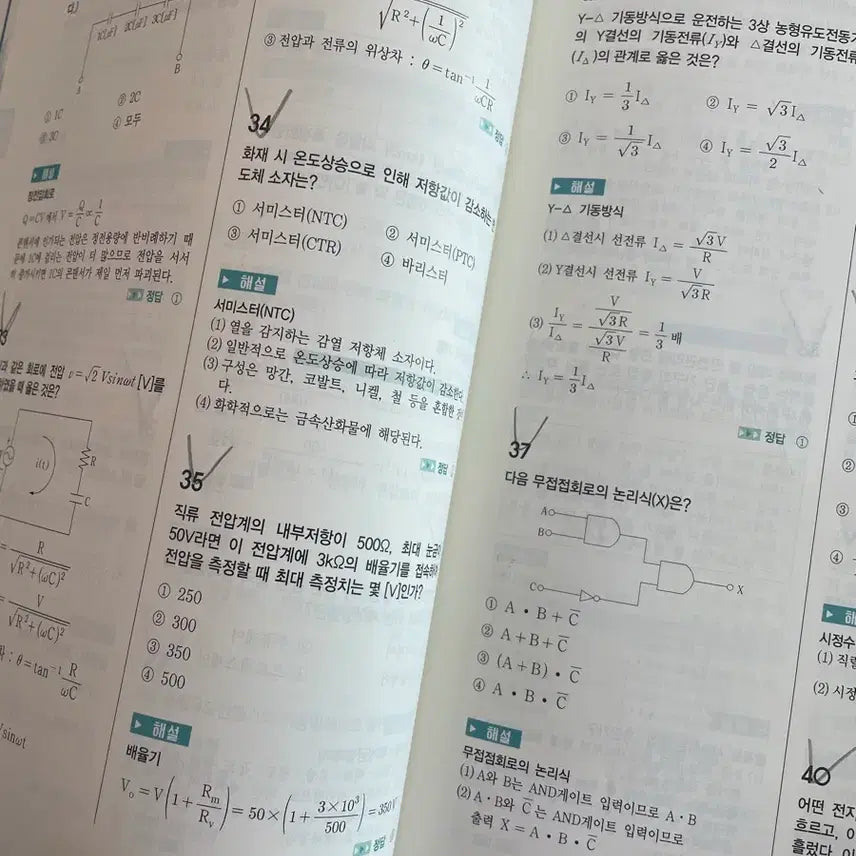 다.)
1C[μF] 2C[μF] 3C[μF]
A
B
① 1C ② 2C
③ 3C ④ 모두
▶ 해설
정전압회로
Q=CV에서 V=Q/C∝1/C
콘덴서에 인가되는 전압은 정전용량에 반비례하기 때
문에 1C에 걸리는 전압이 더 많으므로 전압을 서서
히 증가시키면 1C의 콘덴서가 제일 먼저 파괴된다.
정답 ①
과 같은 회로에 전압 v=√2 Vsinωt [V]를
였을 때 옳은 것은?
i(t)
R
C
= R/√(R²+(ωC)²)
= V/√(R²+(ωC)²)
: θ=tan⁻¹ R/ωC
Vsinωt
√(R²+(1/ωC)²)
③ 전압과 전류의 위상차 : θ=tan⁻¹ 1/ωCR
정답
34
화재 시 온도상승으로 인해 저항값이 감소하는
도체 소자는?
① 서미스터(NTC) ② 서미스터(PTC)
③ 서미스터(CTR) ④ 바리스터
▶ 해설
서미스터(NTC)
(1) 열을 감지하는 감열 저항체 소자이다.
(2) 일반적으로 온도상승에 따라 저항값이 감소한다.
(3) 구성은 망간, 코발트, 니켈, 철 등을 혼합한
다.
(4) 화학적으로는 금속산화물에 해당된다.
정답
35
직류 전압계의 내부저항이 500Ω, 최대 눈금이
50V라면 이 전압계에 3kΩ의 배율기를 접속하여
전압을 측정할 때 최대 측정치는 몇 [V]인가?
① 250
② 300
③ 350
④ 500
▶ 해설
배율기
V₀=V(1+Rm/Rv)=50×(1+3×10³/500)=350V
정답
Y-△ 기동방식으로 운전하는 3상 농형유도전동기
의 Y결선의 기동전류(I_Y)와 △결선의 기동전류
(I_△)의 관계로 옳은 것은?
① I_Y = 1/3 I_△ ② I_Y = √3 I_△
③ I_Y = 1/√3 I_△ ④ I_Y = √3/2 I_△
▶ 해설
Y-△ 기동방식
(1) △결선시 선전류 I_△ = √3V/R
(2) Y결선시 선전류 I_Y = V/√3R
(3) I_Y/I_△ = (V/√3R)/(√3V/R) = 1/3 배
∴ I_Y = 1/3 I_△
정답 ①
37
다음 무접점회로의 논리식(X)은?
A
B
C
X
① A·B+C̅
② A+B+C̅
③ (A+B)·C̅
④ A·B·C̅
▶ 해설
무접점회로의 논리식
(1) A와 B는 AND게이트 입력이므로 A·B
(2) A·B와 C̅는 AND게이트 입력이므로
출력 X=A·B·C̅
①
②
③
④
▶ 해
시정수
(1) 직렬
(2) 시정
40
어떤 전지
흐르고, 이
흘렀다. 이